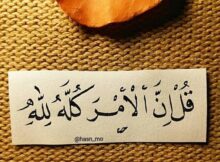 قُلْ إِنَّ ٱلْأَمْرَ كُلَّهُۥ لِلَّهِ
@hasn_mo